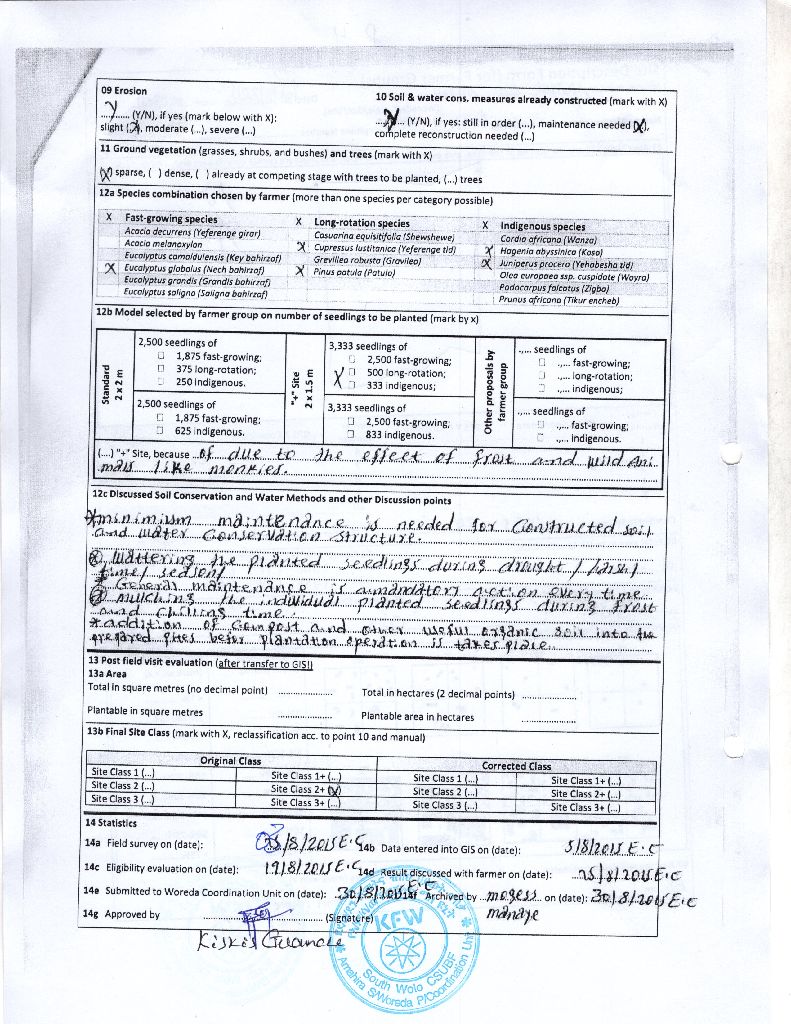 09 Erosion
10 Soil & water cons. measures already constructed (mark with X)
..Y..... (Y/N), if yes (mark below with X):
....Y... (Y/N), if yes: still in order (...), maintenance needed (X),
slight (X), moderate (...), severe (...)
complete reconstruction needed (...)
11 Ground vegetation (grasses, shrubs, and bushes) and trees (mark with X)
(X) sparse, ( ) dense, ( ) already at competing stage with trees to be planted, (...) trees
12a Species combination chosen by farmer (more than one species per category possible)
X Fast-growing species X Long-rotation species X Indigenous species
Acacia decurrens (Yeferenge girar) Casuarina equisitifolia (Shewshewe) Cordia africana (Wanza)
Acacia melanoxylon X Cupressus lustitanica (Yeferenge tid) X Hagenia abyssinica (Koso)
Eucalyptus camaldulensis (Key bahirzaf) Grevillea robusta (Gravilea) X Juniperus procera (Yehabesha tid)
X Eucalyptus globolus (Nech bahirzaf) X Pinus patula (Patula) Olea europaea ssp. cuspidate (Woyra)
Eucalyptus grandis (Grandis bahirzaf) Podocarpus falcatus (Zigba)
Eucalyptus saligna (Saligna bahirzaf) Prunus africana (Tikur encheb)
12b Model selected by farmer group on number of seedlings to be planted (mark by x)
Standard
2 x 2 m
2,500 seedlings of
1,875 fast-growing;
375 long-rotation;
250 indigenous.
2,500 seedlings of
1,875 fast-growing;
625 indigenous.
"+" Site
2 x 1.5 m
3,333 seedlings of
2,500 fast-growing;
X 500 long-rotation;
333 indigenous;
3,333 seedlings of
2,500 fast-growing;
833 indigenous.
Other proposals by
farmer group
.,... seedlings of
.,... fast-growing;
.,... long-rotation;
.,... indigenous;
.,... seedlings of
.,... fast-growing;
.,... indigenous.
(...) "+" Site, because ..of due to the effect of frost and wild Ani
mals like monkies.
12c Discussed Soil Conservation and Water Methods and other Discussion points
minimium maintenance is needed for Constructed soil
and water Conservation structure.
Wattering the planted seedlings during drought /
time/ season/
General maintenance is amandatory action every time
mulching the individual planted seedlings during frost
and chilling time.
*addition of Compost and other useful organic soil into the
prepared pites befor plantation operation is takes place.
13 Post field visit evaluation (after transfer to GIS!)
13a Area
Total in square metres (no decimal point) ................ Total in hectares (2 decimal points) ................
Plantable in square metres ................ Plantable area in hectares ................
13b Final Site Class (mark with X, reclassification acc. to point 10 and manual)
Original Class Corrected Class
Site Class 1 (...) Site Class 1+ (...) Site Class 1 (...) Site Class 1+ (...)
Site Class 2 (...) Site Class 2+ (X) Site Class 2 (...) Site Class 2+ (...)
Site Class 3 (...) Site Class 3+ (...) Site Class 3 (...) Site Class 3+ (...)
14 Statistics
14a Field survey on (date): /8/2015 E.C 14b Data entered into GIS on (date): 5/8/2015 E.C
14c Eligibility evaluation on (date): 19/8/2015 E.C 14d Result discussed with farmer on (date): 25/8/2015 E.C
14e Submitted to Woreda Coordination Unit on (date): 30/8/2015 E.C 14f Archived by mogess on (date): 30/8/2015 E.C
manaye
14g Approved by ................ (Signature)
KFW
South Wolo CSUBF